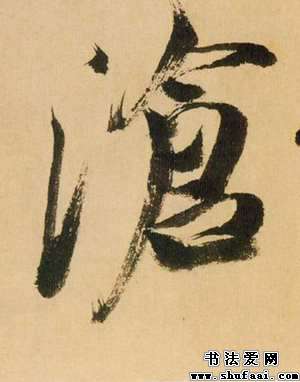 滄
书法爱网
www.shufaai.com